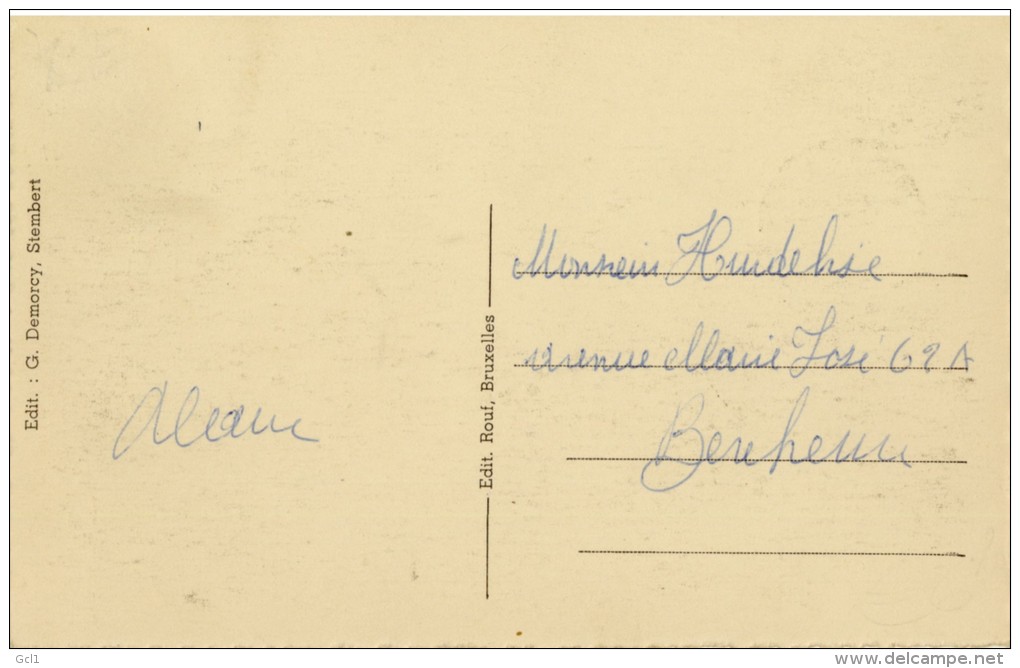 Edit. : G. Demorcy, Stembert
Edit. Rouf, Bruxelles
Monsieur
avenue Marie José 62 A
Berchem
Gcl1
www.delcampe.net